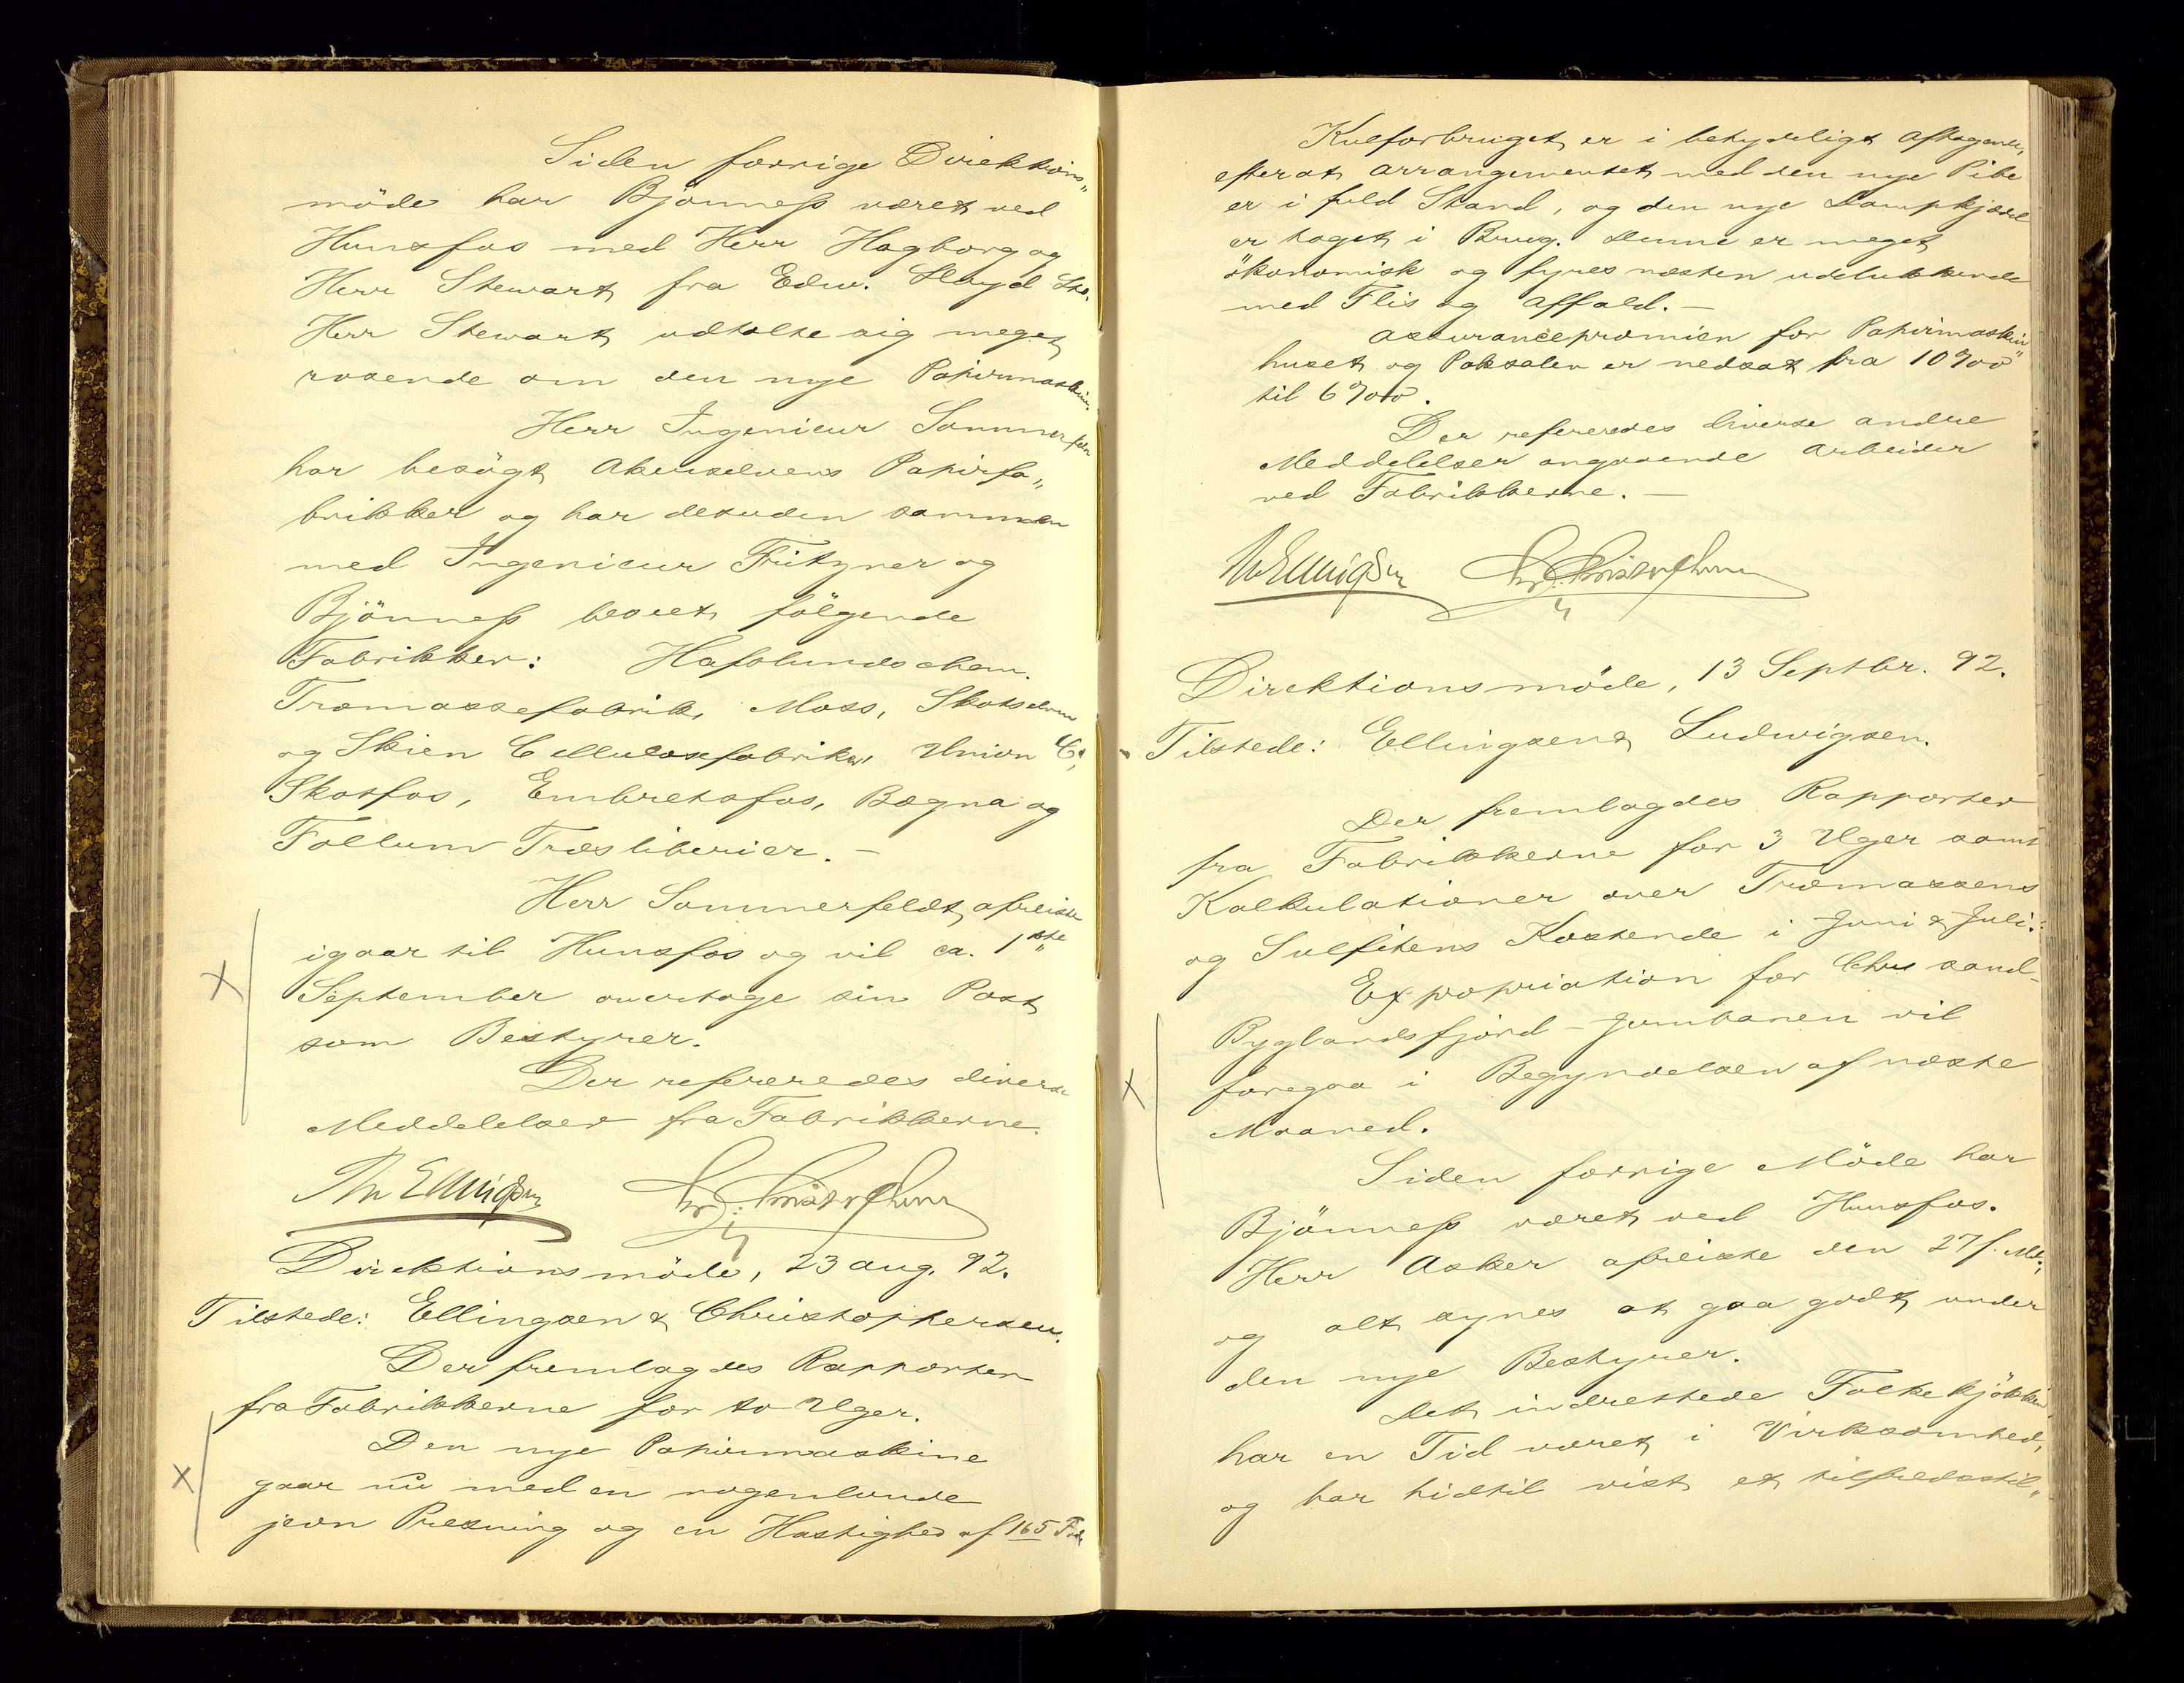 Siden forrige Direktions„
möde har Bjönness været ved
Hunsfos med Herr Hagborg og
Herr Stewart fra Edw. Lloyd Ltd.
Herr Stewart udtalte sig meget
rosende om den nye Papirmaskin.
Herr Ingeniör Sommerfeldt
har besögt Akerselvens Papirfa„
brikker og har desuden sammen
med Ingeniör Fritzner og
Bjönness beseet fölgende
Fabrikker: Hafslunds chem.
Træmassefabrik, Moss, Skotselvens
og Skien Cellulosefabriker, Union Co,
Skotfos, Embretsfos, Bægna og
Follum Træsliberier. —
Herr Sommerfeldt afreiste
igaar til Hunsfos og vil ca. 1ste
September overtage sin Post
som Bestyrer.
Der refereredes diverse
Meddelelser fra Fabrikkerne.
Th Ellingsen Chr. Christophersen
Direktionsmöde, 23 Aug. 92.
Tilstede: Ellingsen & Christophersen.
Der fremlagdes Rapporter
fra Fabrikkerne for to Uger.
Den nye Papirmaskine
gaar nu med en nogenlunde
jevn Presning og en Hastighed af 165 Fod.
Kulforbruget er i betydeligt Aftagende,
efterat Arrangementet med den nye Pibe
er i fuld Stand, og den nye Dampkjedel
er taget i Brug. Denne er meget
ökonomisk og fyres næsten udelukkende
med Flis og Affald. —
Assurancepræmien for Papirmaskin„
huset og Paksalen er nedsat fra 10 ‰
til 6 ‰.
Der refereredes diverse andre
Meddelelser angaaende Arbeider
ved Fabrikkerne. —
Th Ellingsen Chr. Christophersen
Direktionsmöde, 13 Septbr. 92.
Tilstede: Ellingsen & Ludwigsen.
Der fremlagdes Rapporter
fra Fabrikkerne for 3 Uger samt
Kalkulationer over Træmassens
og Sulfitens Kostende i Juni & Juli.
Expropriation for Chrs sand-
Byglandsfjord-Jernbanen vil
foregaa i Begyndelsen af næste
Maaned.
Siden forrige Möde har
Bjönness været ved Hunsfos.
Herr Asker afreiste den 27 f. Md.,
og alt synes at gaa godt under
den nye Bestyrer.
Det indrettede Folkekjökken
har en Tid været i Virksomhed,
og har hidtil vist et tilfredsstil„